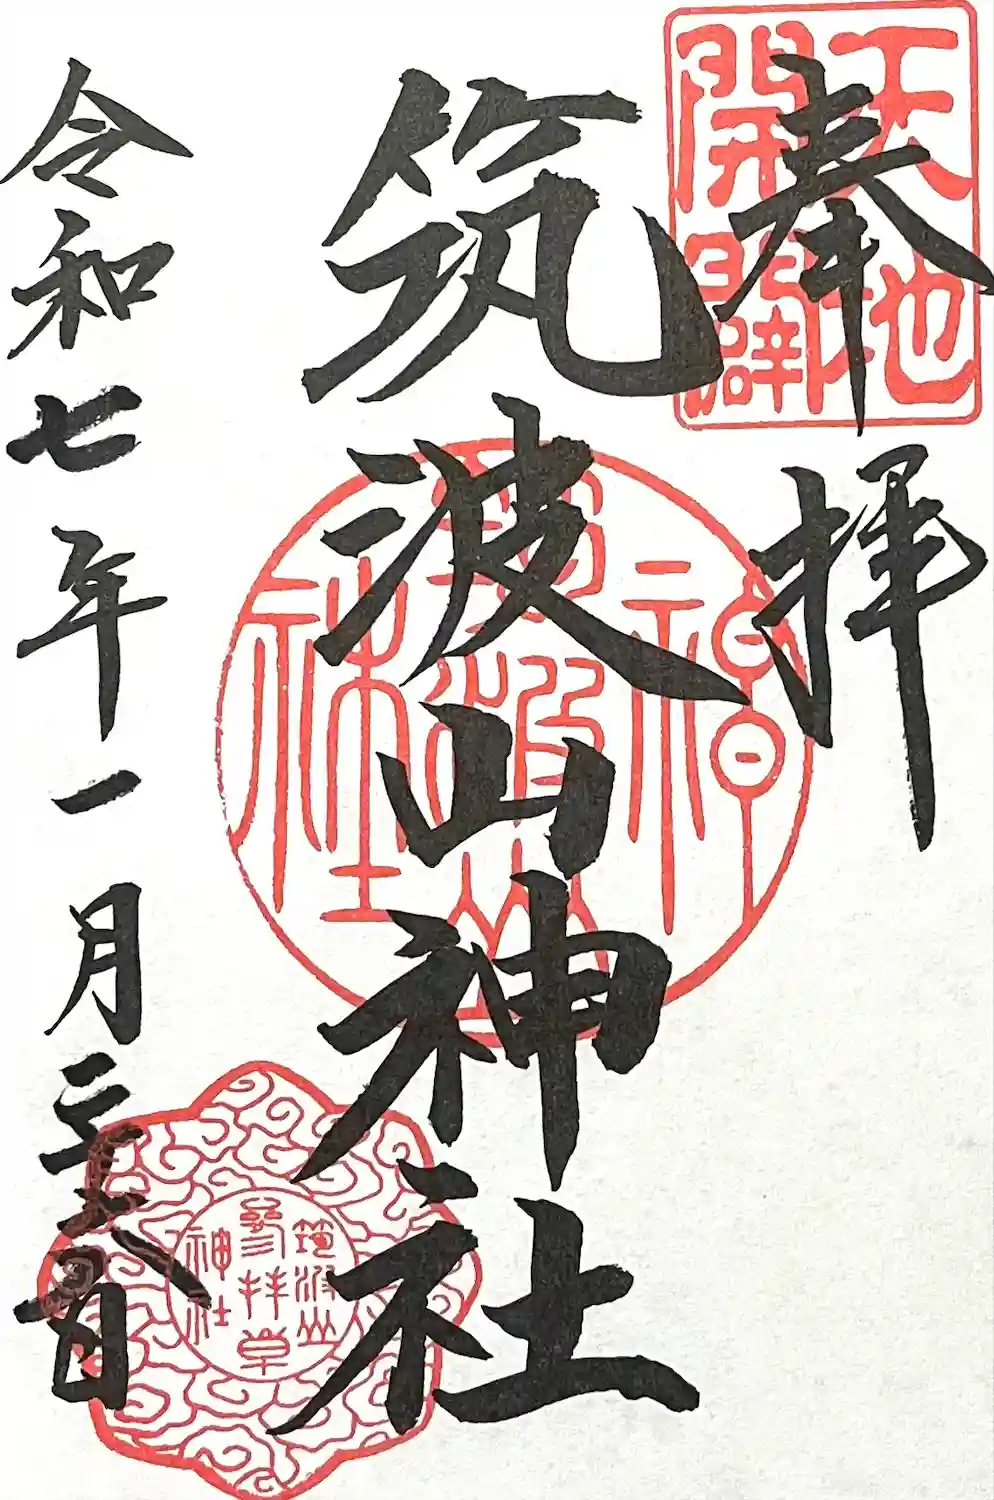 奉拝
天地
開闢
筑波山神社
筑波山
神社
令和七年一月
筑波山
神社